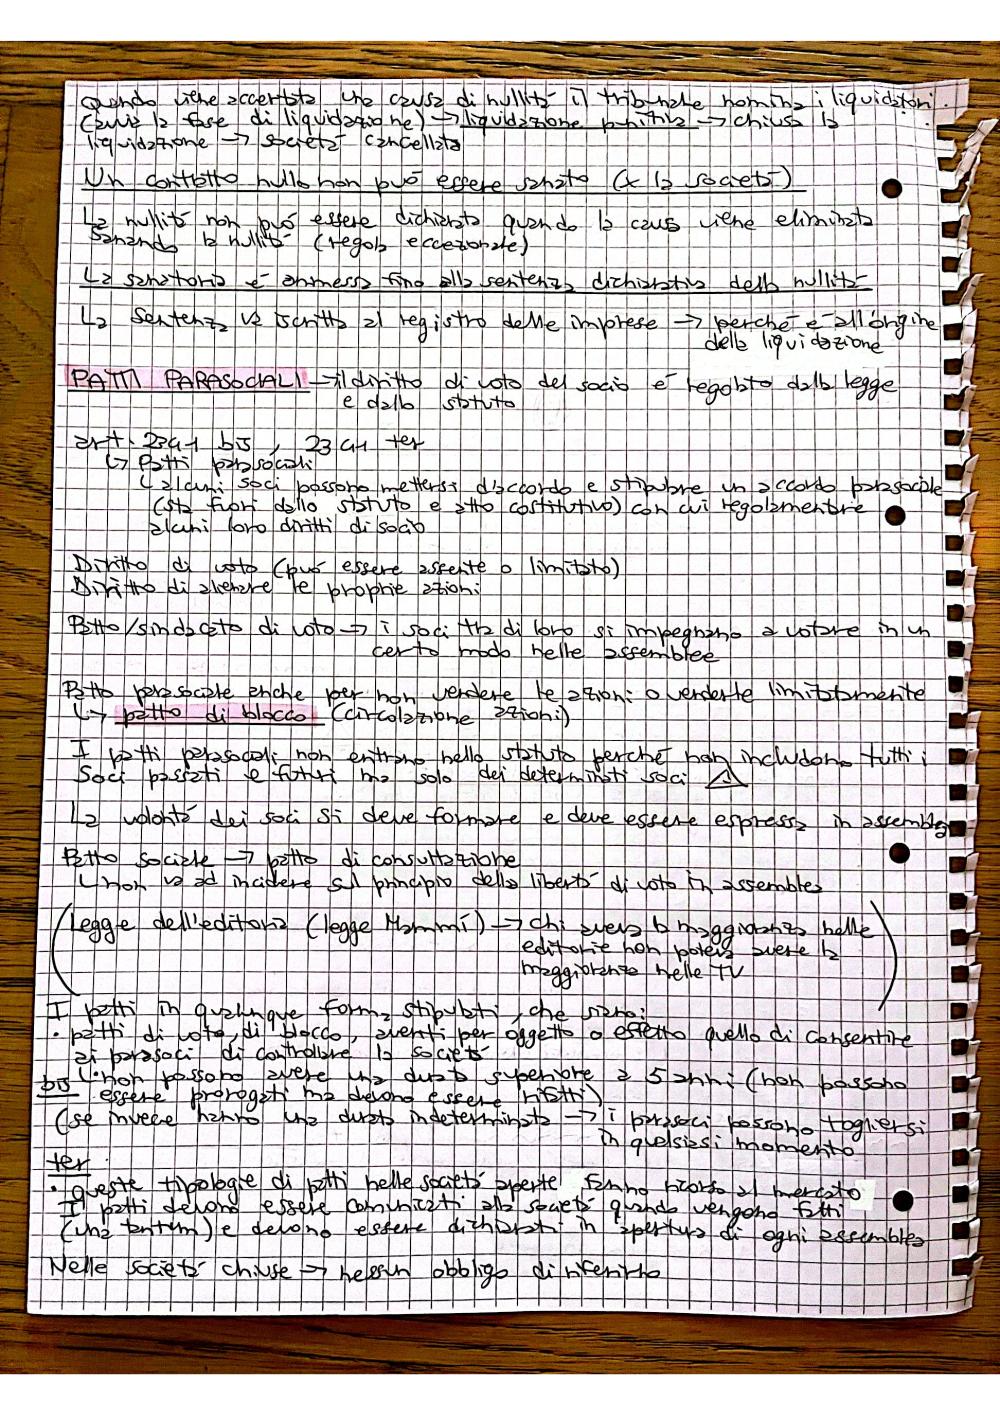 Quando viene accertata una causa di nullità il tribunale nomina i liquidatori.
(avvia la fase di liquidazione) → liquidazione punitiva → chiusa la
liquidazione → società cancellata
Un contratto nullo non può essere sanato (x la società)
La nullità non può essere dichiarata quando la causa viene eliminata
sanando la nullità (regola eccezionale)
La sanatoria è ammessa fino alla sentenza dichiarativa della nullità
La sentenza va iscritta al registro delle imprese → perché è all'origine
della liquidazione
PATTI PARASOCIALI → il diritto di voto del socio è regolato dalla legge
e dallo statuto
art. 2341 bis, 2341 ter
↳ Patti parasociali
↳ alcuni soci possono mettersi d'accordo e stipulare un accordo parasociale
(sta fuori dallo statuto e atto costitutivo) con cui regolamentare
alcuni loro diritti di socio
Diritto di voto (può essere assente o limitato)
Diritto di alienare le proprie azioni
Patto/sindacato di voto → i soci tra di loro si impegnano a votare in un
certo modo nelle assemblee
Patto parasociale anche per non vendere le azioni o venderle limitatamente
↳ patto di blocco (circolazione azioni)
I patti parasociali non entrano nello statuto perché non includono tutti i
soci passati e futuri ma solo dei determinati soci ⚠
La volontà dei soci si deve formare e deve essere espressa in assemblea
Patto sociale → patto di consultazione
↳ non va ad incidere sul principio della libertà di voto in assemblea
(Legge dell'editoria (legge Mammì) → chi aveva la maggioranza nelle
editorie non poteva avere la
maggioranza nelle TV)
I patti in qualunque forma stipulati, che siano:
• patti di voto, di blocco, aventi per oggetto o effetto quello di consentire
ai parasoci di controllare la società
bis ↳ non possono avere una durata superiore a 5 anni (non possono
essere prorogati ma devono essere rifatti)
(se invece hanno una durata indeterminata → i parasoci possono togliersi
in qualsiasi momento
ter
• queste tipologie di patti nelle società aperte fanno ricorso al mercato
I patti devono essere comunicati alla società quando vengono fatti
(una tantum) e devono essere dichiarati in apertura di ogni assemblea
Nelle società chiuse → nessun obbligo di riferirlo